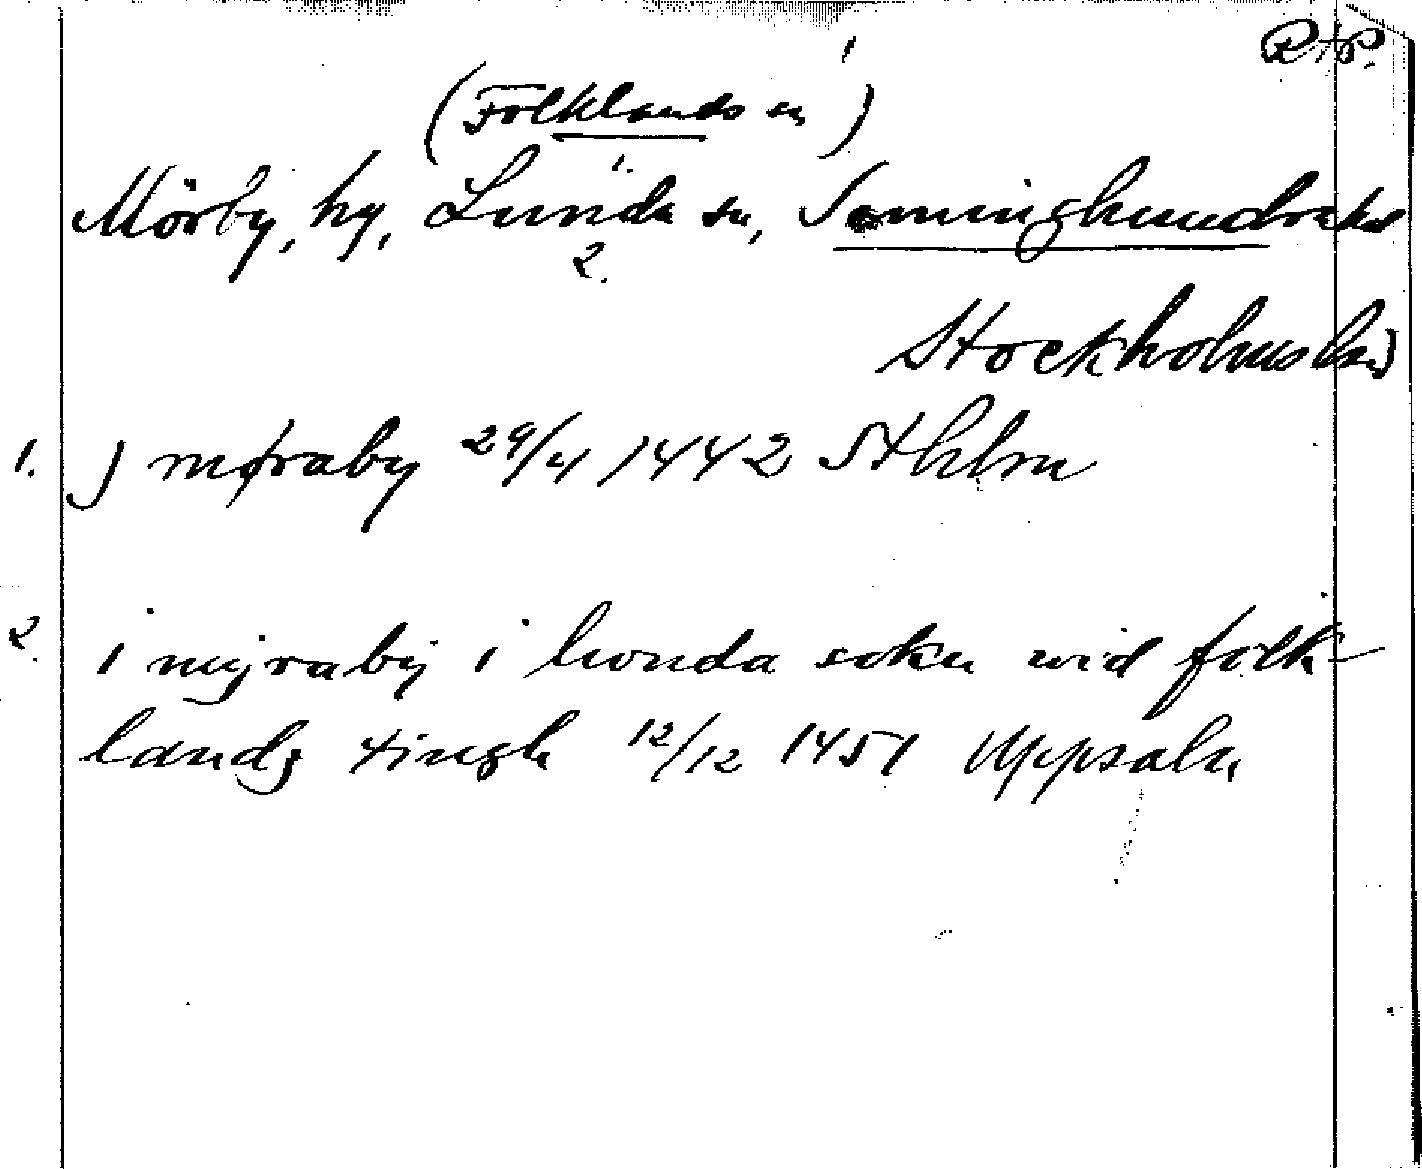 RAP.
1
(Folklands sn)
Mörby, by, Lunda sn, Seminghundra hd
2.
Stockholms län
1. J møraby 29/4 1442 Sthlm
2. i myraby i lunda sokn wid folk-
landz tingh 12/12 1451 Uppsala